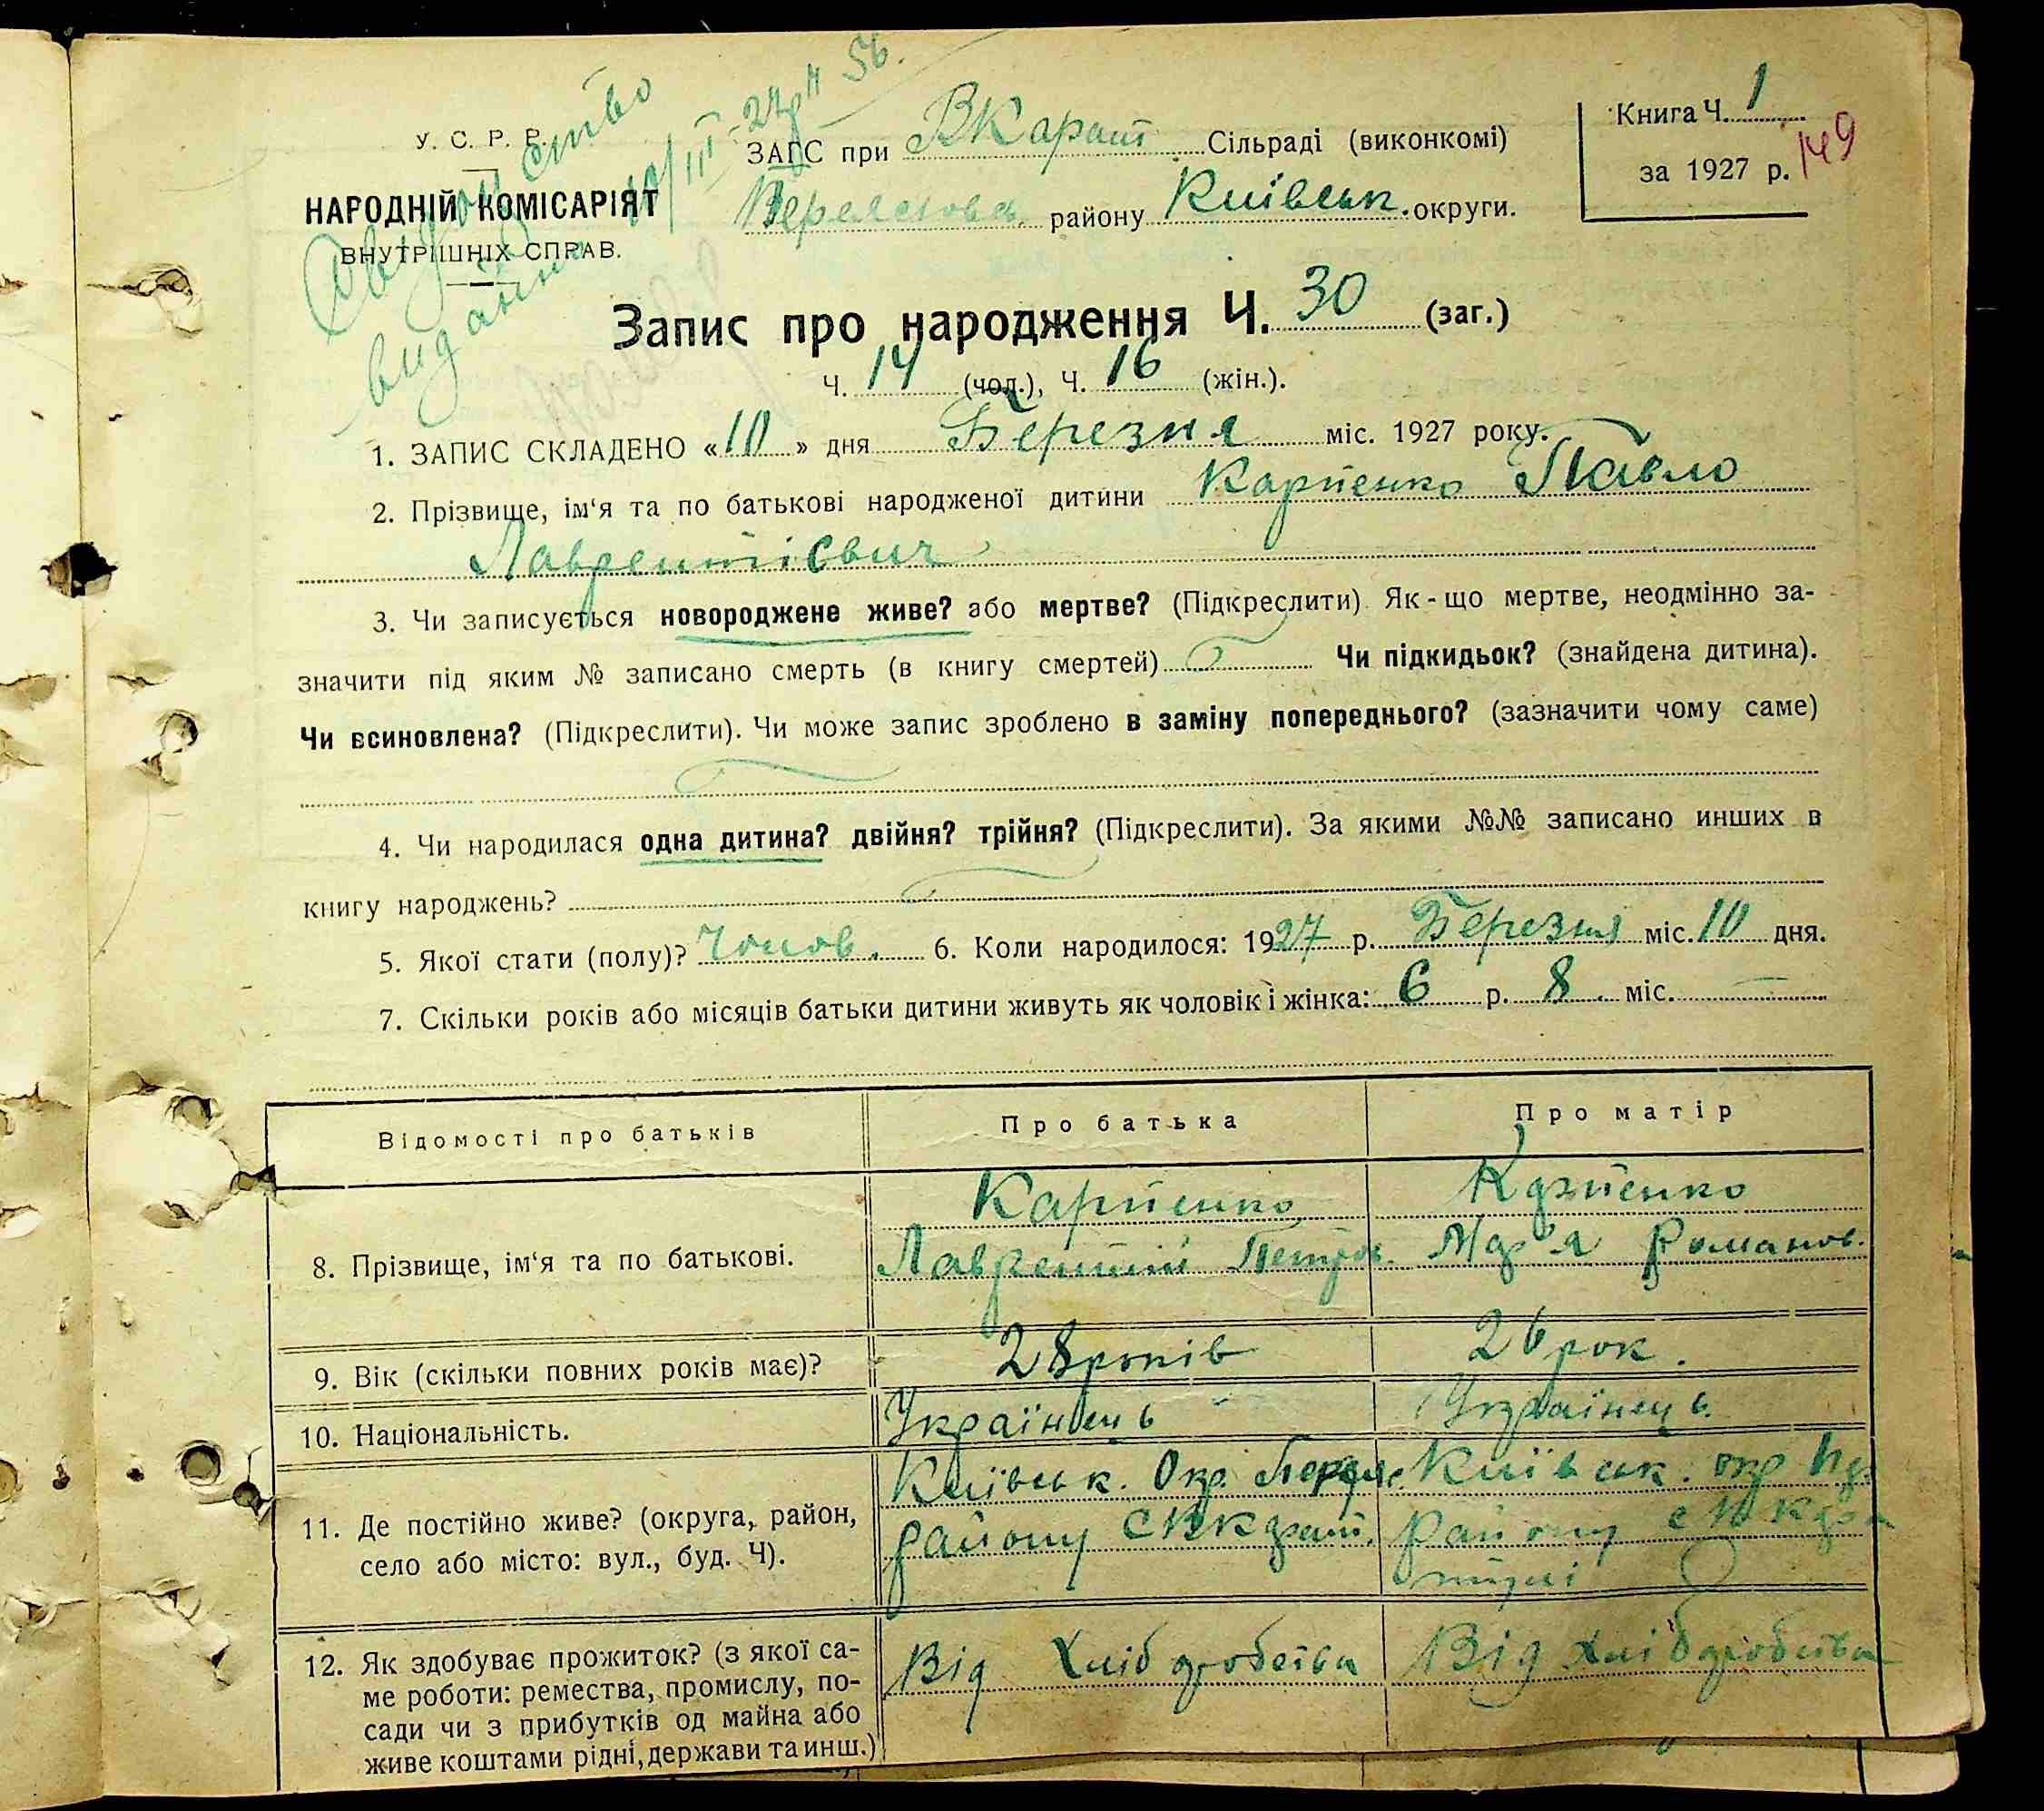 У. С. Р. Р.
НАРОДНІЙ КОМІСАРІЯТ
ВНУТРІШНІХ СПРАВ.
видано
ЗАГС при ВКарат Сільраді (виконкомі)
района Київськ. округи.
Книга Ч. 1
за 1927 р. 149
Запис про народження Ч. 30 (заг.)
Ч. 14 (чол.), Ч. 16 (жін.).
1. ЗАПИС СКЛАДЕНО «10» дня Березня міс. 1927 року.
2. Прізвище, ім'я та по батькові народженої дитини Карпенко Павло
Лаврентієвич
3. Чи записується новороджене живе? або мертве? (Підкреслити) Як-що мертве, неодмінно за-
значити під яким № записано смерть (в книгу смертей) Чи підкидьок? (знайдена дитина).
Чи всиновлена? (Підкреслити). Чи може запис зроблено в заміну попереднього? (зазначити чому саме)
4. Чи народилася одна дитина? двійня? трійня? (Підкреслити). За якими №№ записано инших в
книгу народжень?
5. Якої стати (полу)? Чолов. 6. Коли народилося: 1927 р. Березня міс. 10 дня.
7. Скільки років або місяців батьки дитини живуть як чоловік і жінка: 6 р. 8 міс.
Відомості про батьків Про батька Про матір
8. Прізвище, ім'я та по батькові.
Карпенко
Лаврентий Петров.
Карпенко
Мар'я Романов.
9. Вік (скільки повних років має)? 28 років 26 рок.
10. Національність. Українець Українець
11. Де постійно живе? (округа, район,
село або місто: вул., буд. Ч).
Київськ. Окр. Переяс.
району с ВКарат.
Київськ. окр
району с ВКара
12. Як здобуває прожиток? (з якої са-
ме роботи: ремества, промислу, по-
сади чи з прибутків од майна або
живе коштами рідні, держави та инш.)
Від Хліборобства
Від Хліборобства